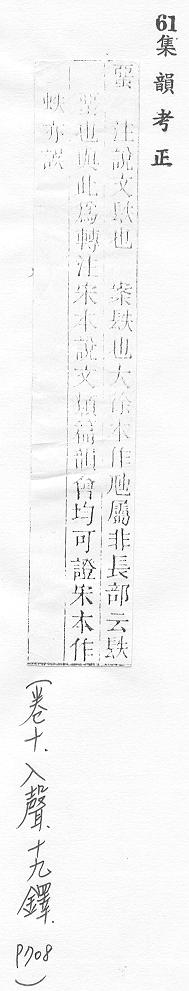 61集韻考正
蝁 注說文镻也 案镻也大徐本作虺屬非長部云镻
蝁也與此爲轉注宋本說文類篇韻會均可證朱本作
亦誤
(卷十.入聲.十九鐸. P708)